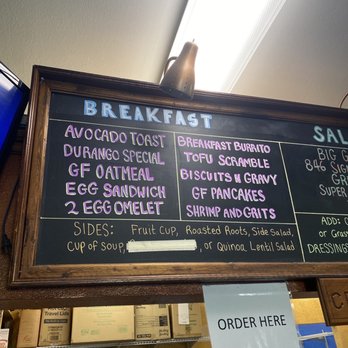 BREAKFAST
AVOCADO TOAST
DURANGO SPECIAL
GF OATMEAL
EGG SANDWICH
2 EGG OMELET
BREAKFAST BURRITO
TOFU SCRAMBLE
BISCUITS N GRAVY
GF PANCAKES
SHRIMP AND GRITS
SIDES: Fruit Cup, Roasted Roots, Side Salad,
Cup of Soup, or Quinoa, Lentil Salad
SAL
BIG G
846 SIG
GR
SUPER
ADD: C
or Grass
DRESSINGS
ORDER HERE
Travel Lids